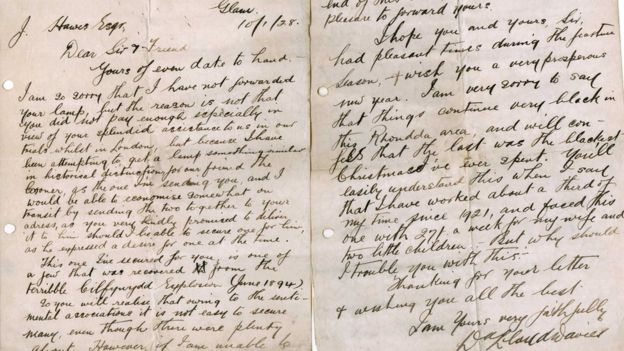 Glam.
10/1/28.
J. Hawes Esqr,
Dear Sir & Friend
Yours of even date to hand:—
I am so sorry that I have not forwarded
your lamp, but the reason is not that
you did not pay enough especially in
view of your splendid assistance to us in our
trials whilst in London, but because I have
been attempting to get a lamp something similar
in historical distinction for our friend the
Coroner, as the one I'm sending you, and I
would be able to economise somewhat on
transit by sending the two together to your
adress, as you very kindly promised to deliver
it to him should I be able to secure one for him,
as he expressed a desire for one at the time.
This one I've secured for you, is one of
a few that was recovered from the
terrible Cilfynydd Explosion (June 1894)
So you will realise that owing to the senti-
mental associations it is not easy to secure
many, even though there were plenty
about. However, if I am unable to
end of this
pleasure to forward yours.
I hope you and yours, Sir,
had pleasant times during the festive
Season, & wish you a very prosperous
new year. I am very sorry to say
that things continue very black in
this Rhondda area, and will con-
fess that the last was the blackest
Christmas I've ever spent. You'll
easily understand this when I say
that I have worked about a third of
my time since 1921, and faced this
one with 27/- a week for my wife and
two little children — But why should
I trouble you with this:—
Thanking for your letter
& wishing you all the best.
I am Yours very faithfully
Davies